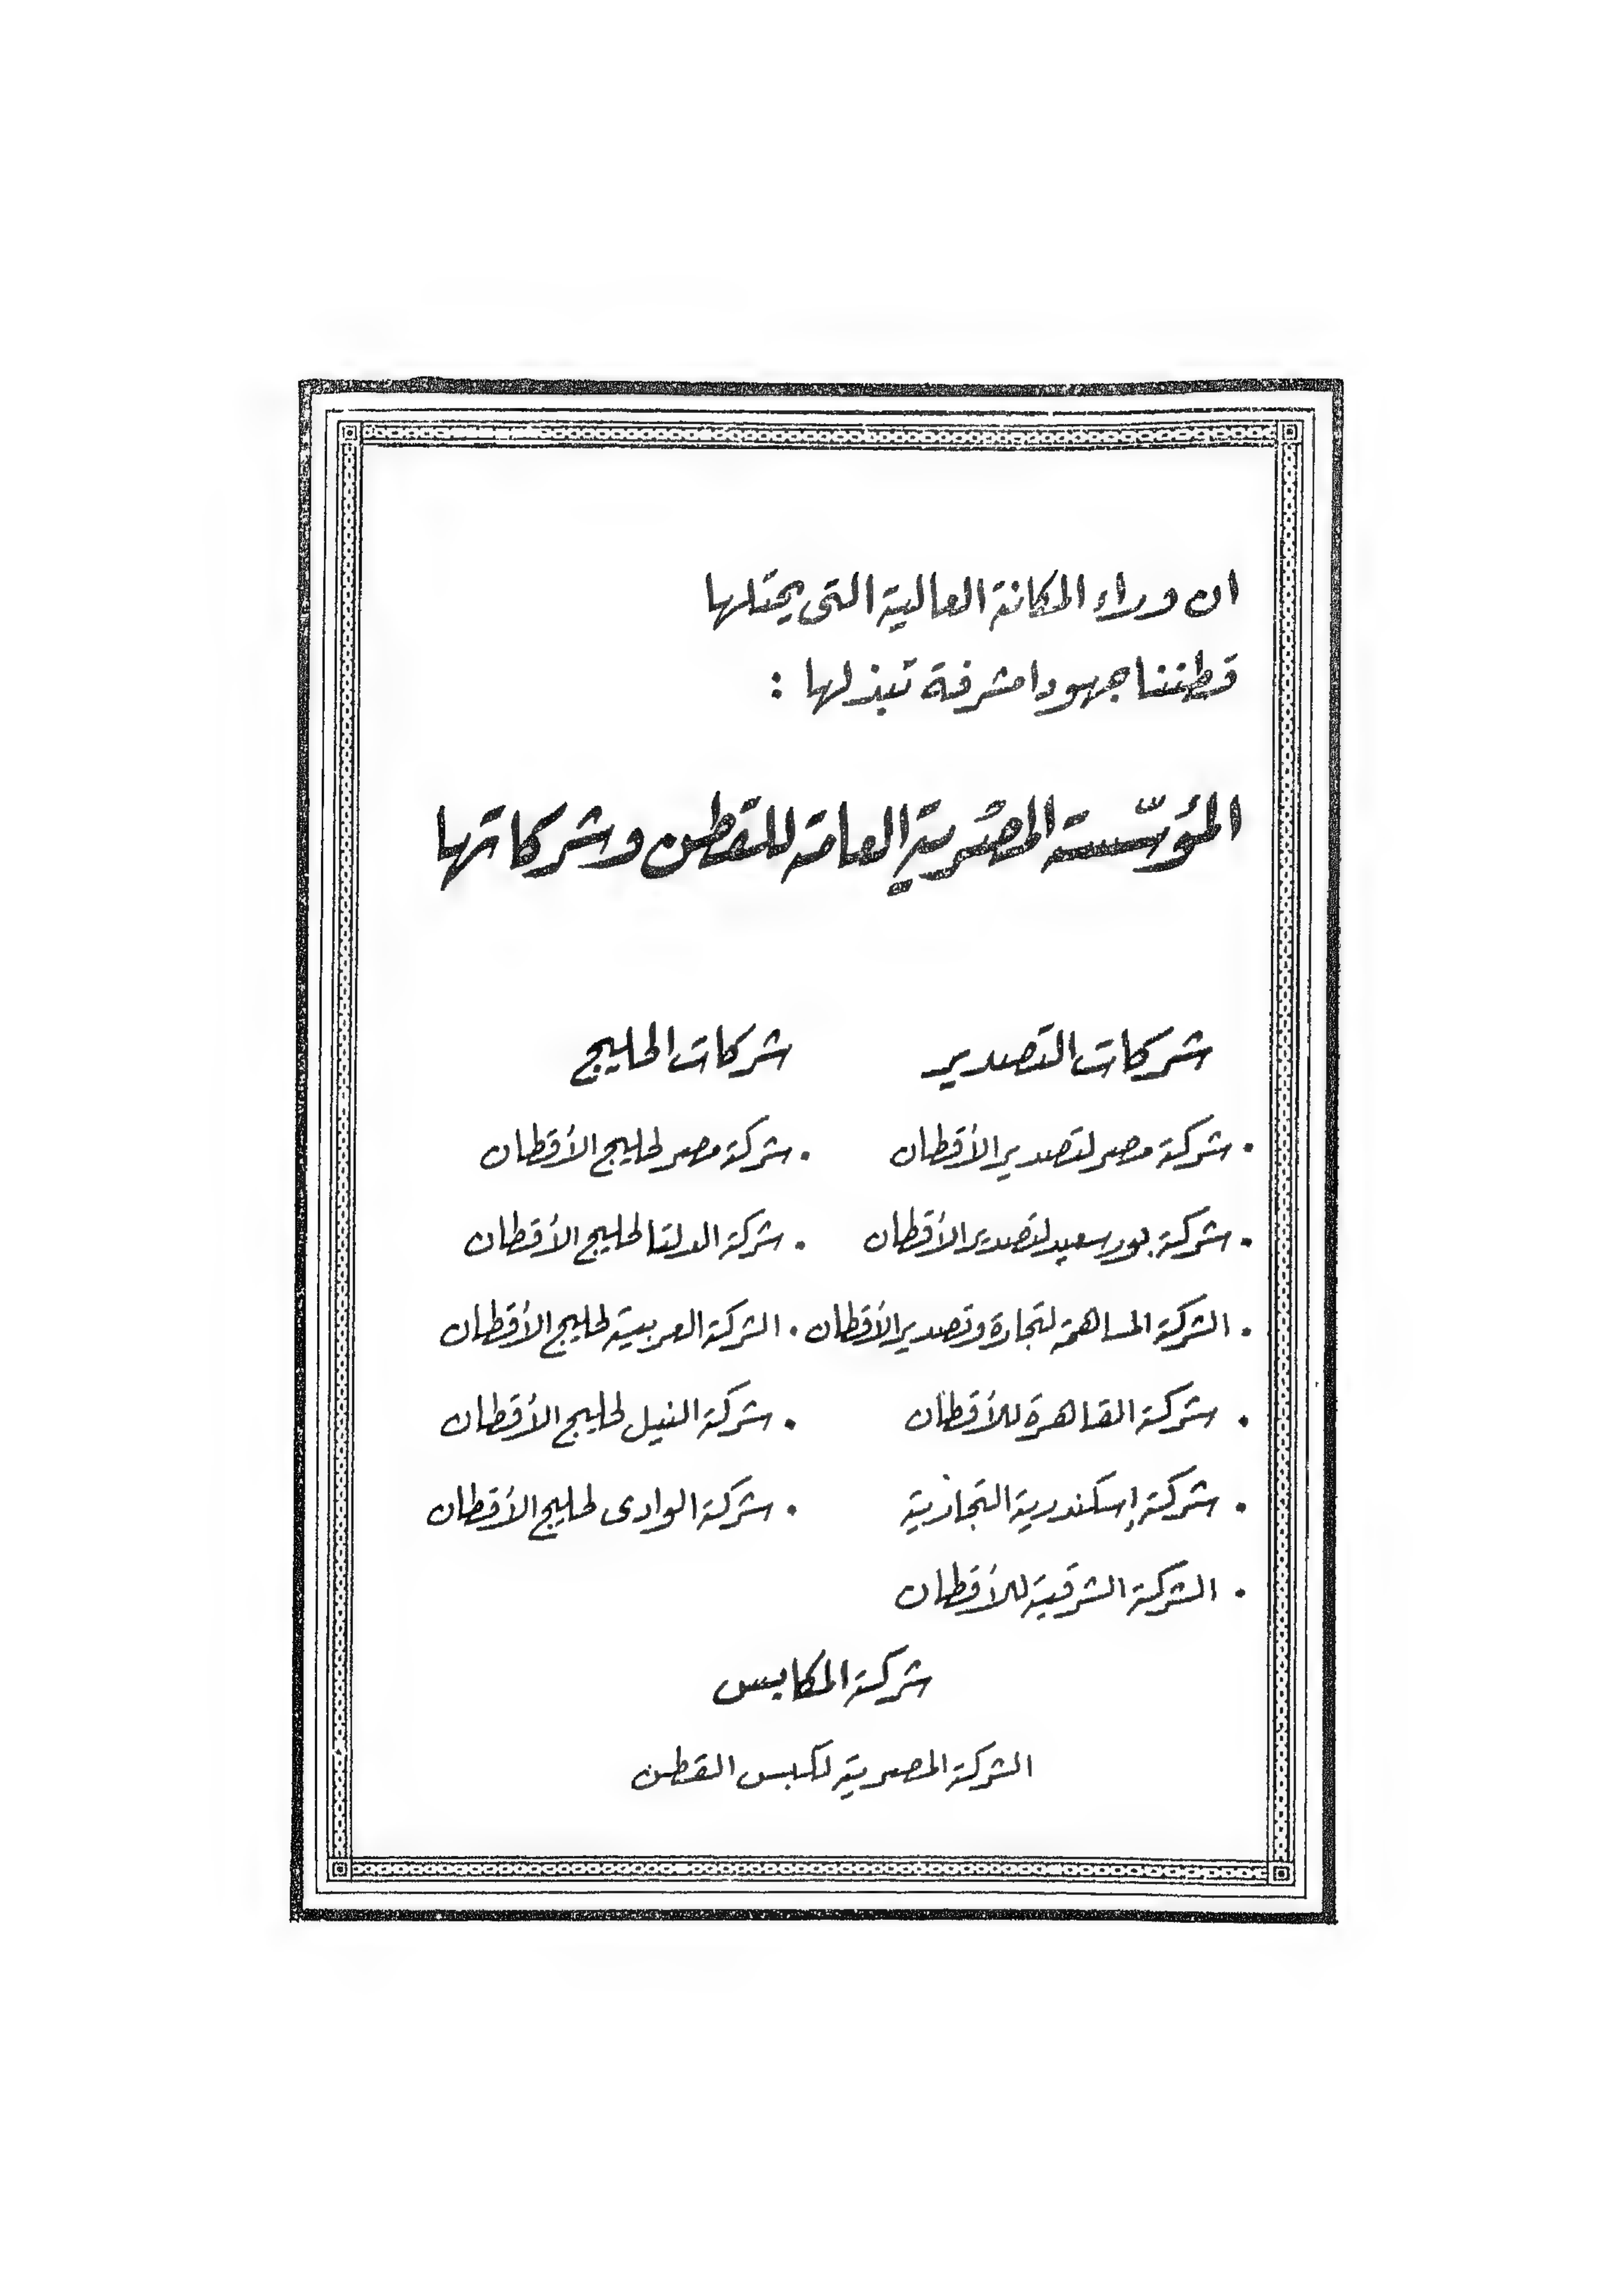 ان وراء المكانة العالية التى يحتلها
قطننا جهودا مشرفة تبذلها :
المؤسّسة المصرية العامة للقطن وشركاتها
شركات التصدير
• شركة مصر لتصدير الأقطان
• شركة بورسعيد لتصدير الأقطان
• الشركة المساهمة لتجارة وتصدير الأقطان
• شركة القاهرة للأقطان
• شركة إسكندرية التجارية
• الشركة الشرقية للأقطان
شركات الحليج
• شركة مصر لحليج الأقطان
• شركة الدلتا لحليج الأقطان
• الشركة العربية لحليج الأقطان
• شركة النيل لحليج الأقطان
• شركة الوادى لحليج الأقطان
شركة المكابس
الشركة المصرية لكبس القطن